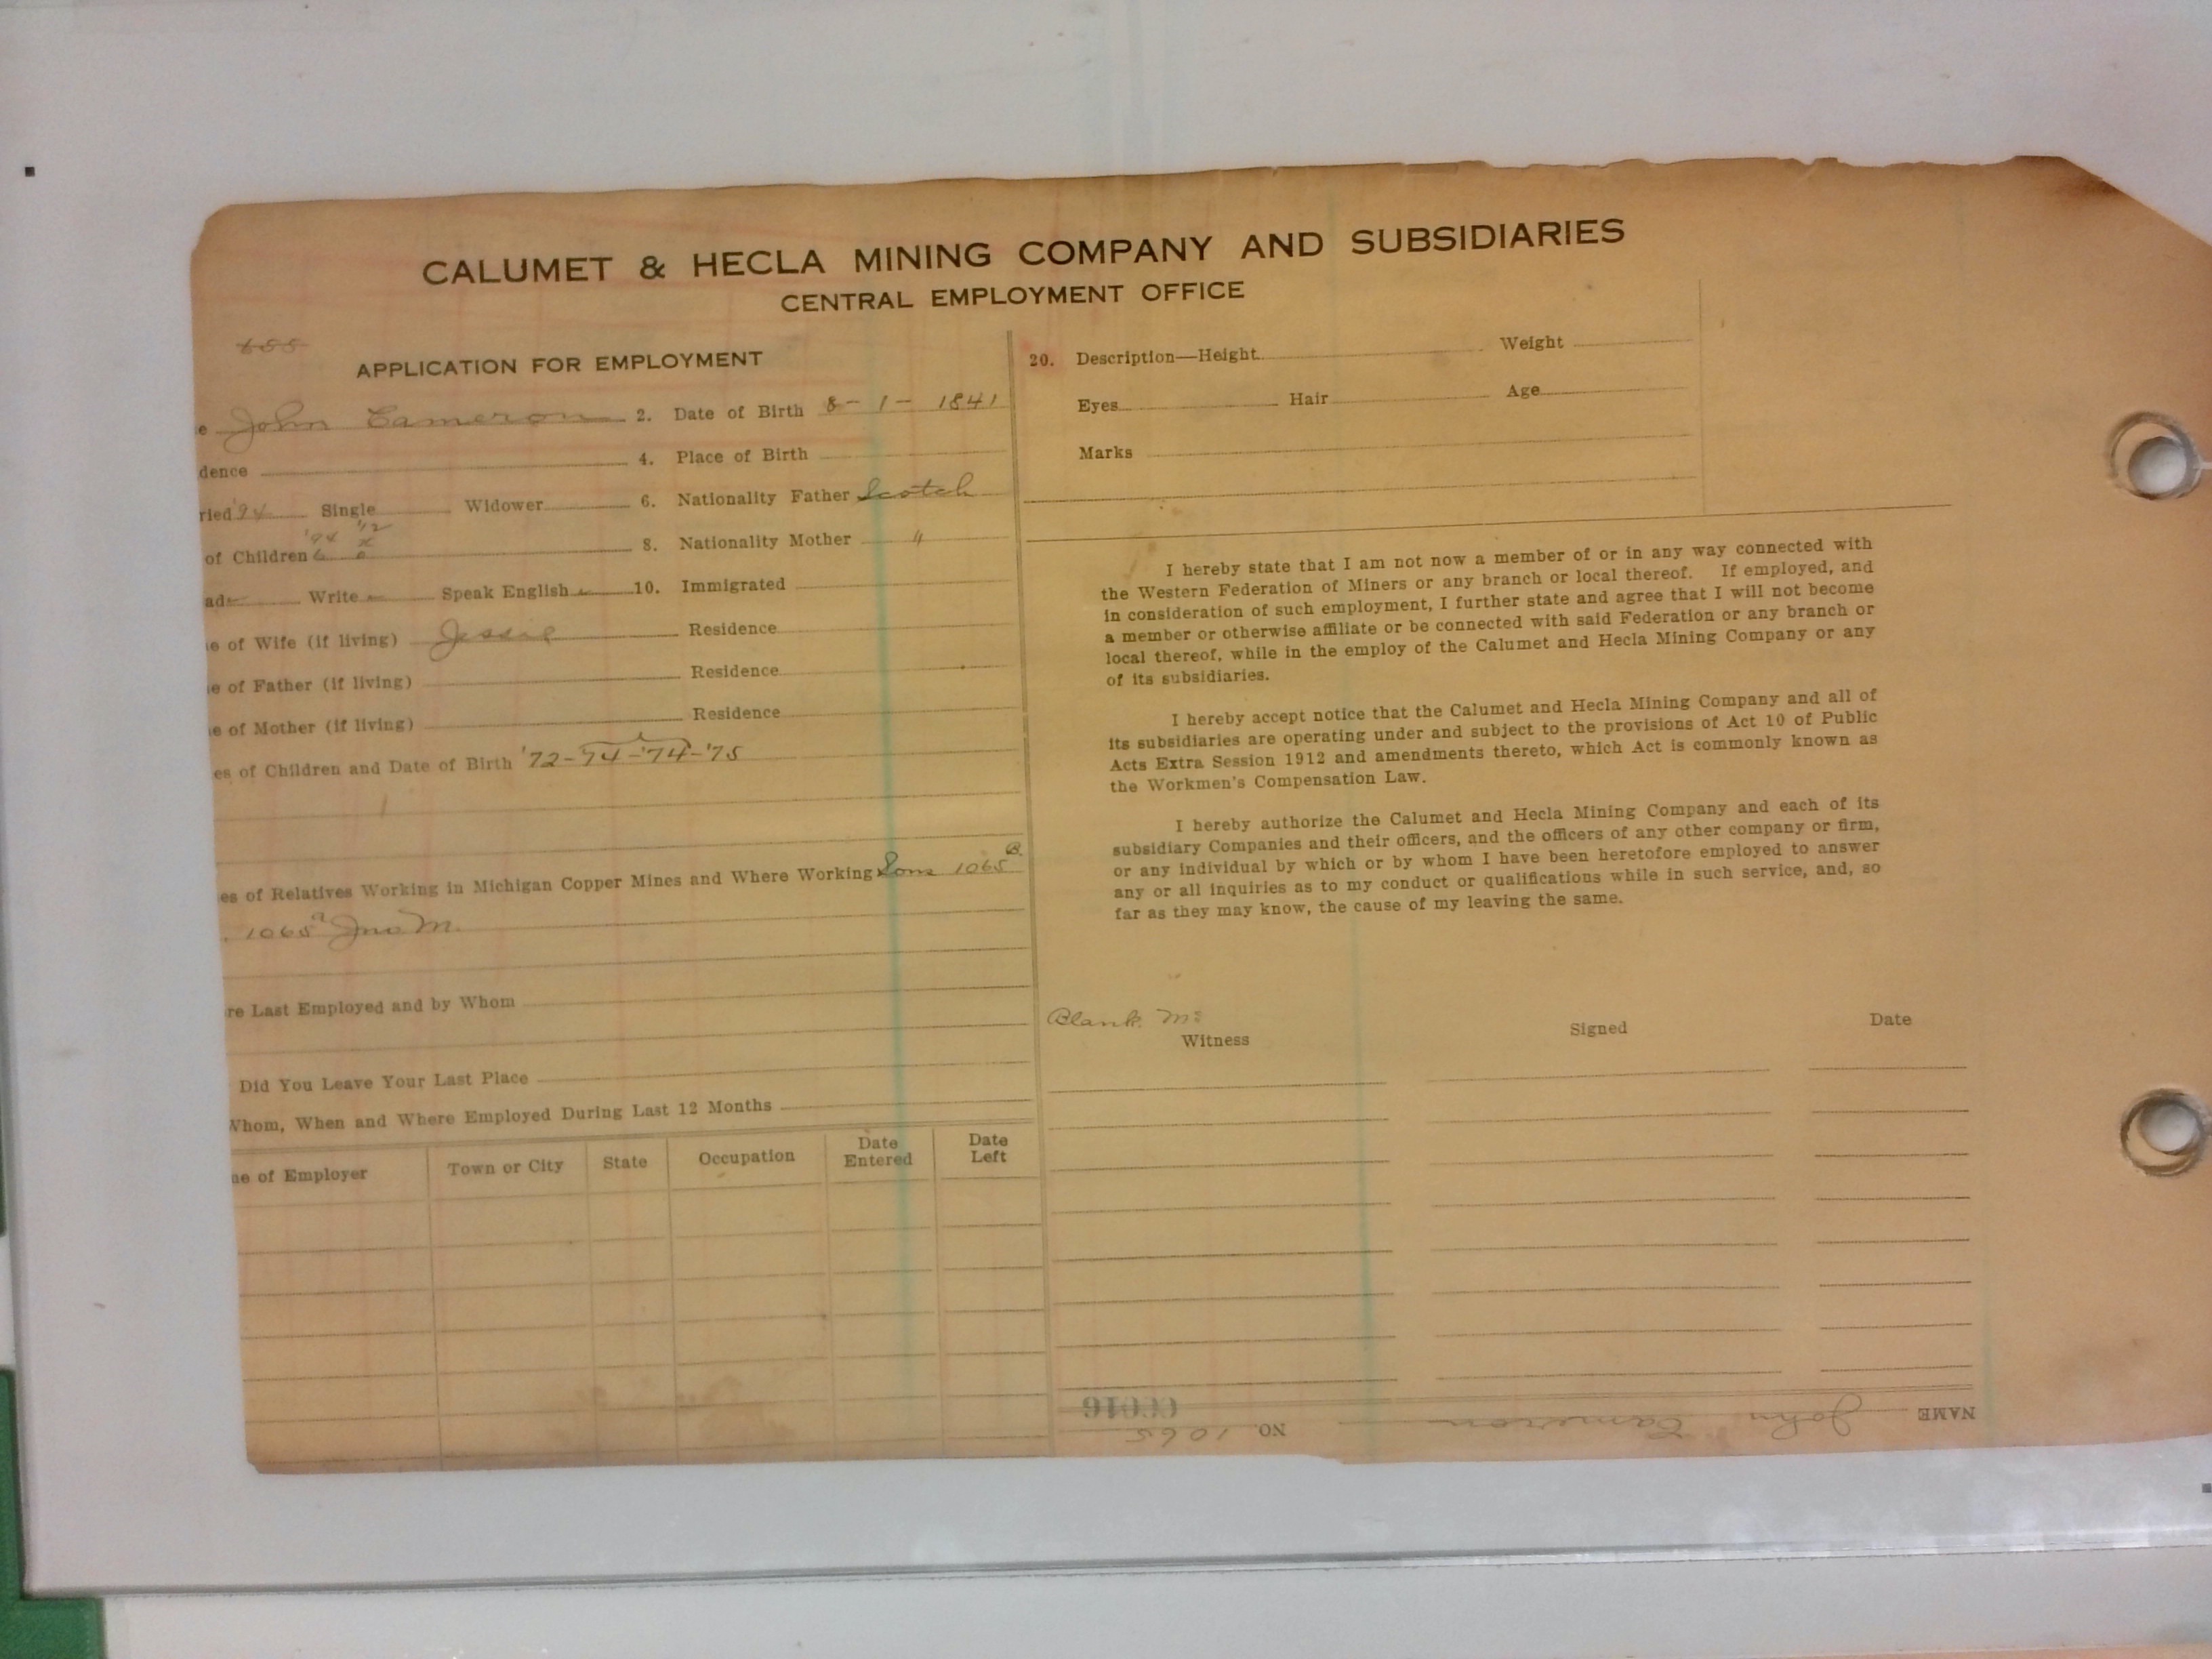 CALUMET & HECLA MINING COMPANY AND SUBSIDIARIES
CENTRAL EMPLOYMENT OFFICE
APPLICATION FOR EMPLOYMENT
e John Cameron 2. Date of Birth 8-1-1841
dence 4. Place of Birth
ried '94 Single Widower 6. Nationality Father Scotch
'94 '12
of Children 6 8. Nationality Mother "
ad Write Speak English 10. Immigrated
e of Wife (if living) Jessie Residence
e of Father (if living) Residence
e of Mother (if living) Residence
es of Children and Date of Birth '72-'74-'74-'75
es of Relatives Working in Michigan Copper Mines and Where Working Sons 1065 B.
1065 a Jno M.
re Last Employed and by Whom
Did You Leave Your Last Place
Whom, When and Where Employed During Last 12 Months
ne of Employer Town or City State Occupation Date Entered Date Left
20. Description—Height Weight
Eyes Hair Age
Marks
I hereby state that I am not now a member of or in any way connected with
the Western Federation of Miners or any branch or local thereof. If employed, and
in consideration of such employment, I further state and agree that I will not become
a member or otherwise affiliate or be connected with said Federation or any branch or
local thereof, while in the employ of the Calumet and Hecla Mining Company or any
of its subsidiaries.
I hereby accept notice that the Calumet and Hecla Mining Company and all of
its subsidiaries are operating under and subject to the provisions of Act 10 of Public
Acts Extra Session 1912 and amendments thereto, which Act is commonly known as
the Workmen's Compensation Law.
I hereby authorize the Calumet and Hecla Mining Company and each of its
subsidiary Companies and their officers, and the officers of any other company or firm,
or any individual by which or by whom I have been heretofore employed to answer
any or all inquiries as to my conduct or qualifications while in such service, and, so
far as they may know, the cause of my leaving the same.
Witness Signed Date
NAME John Cameron NO. 1065